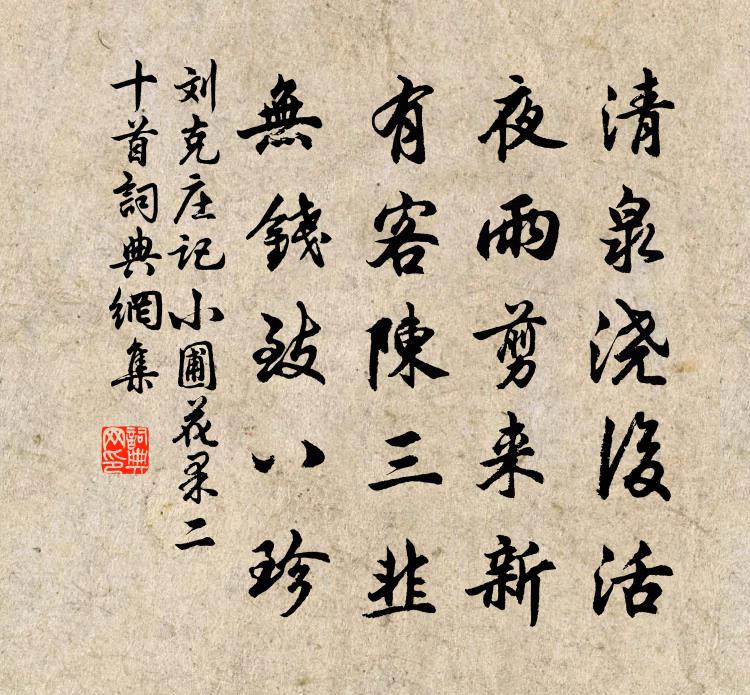 清泉浇後活
夜雨剪来新
有客陳三韭
無錢致八珍
刘克庄记小圃花果二
十首詞典網集
詞典
网印